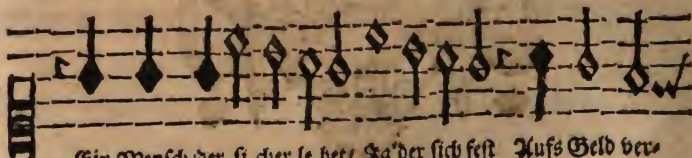 Ein Mensch der si cher le bet/ Ja der sich fest Aufs Geld ver⸗